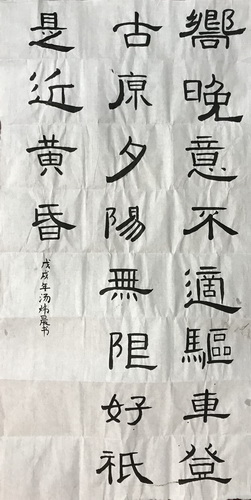 嚮晚意不適驅車登
古原夕陽無限好祇
是近黃昏
戊戌年汤炜晨书